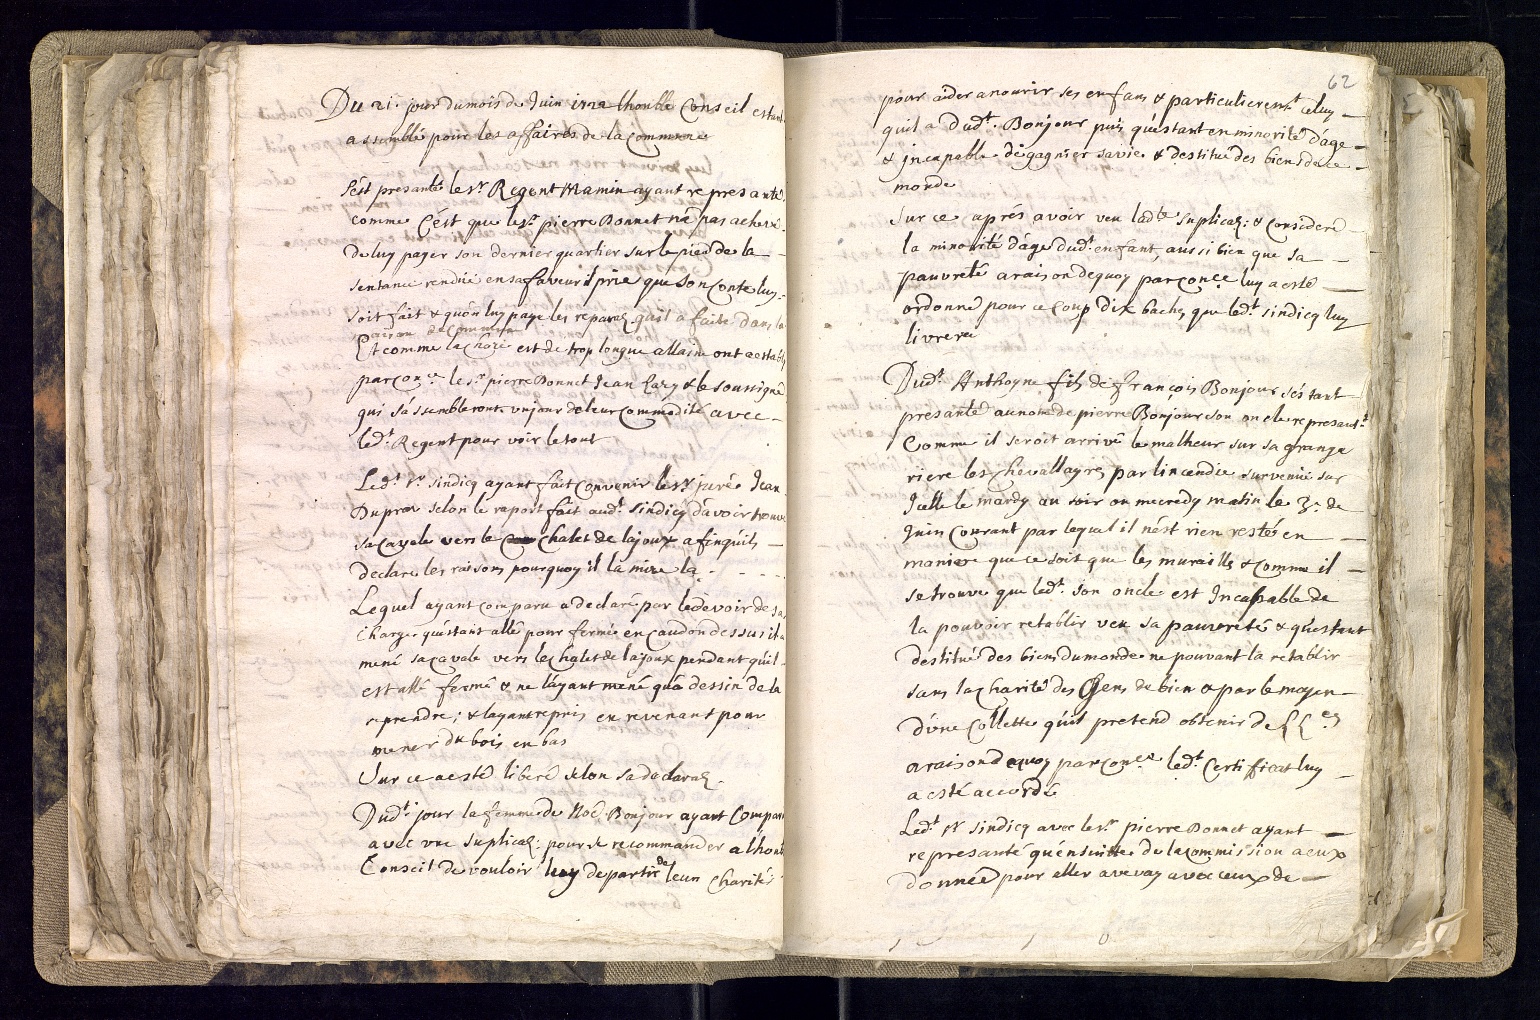 Du 21. jour du mois de Juin 1722 lhonble Conseil estant
assemblé pour les affaires de la Commune
S'est presanté le Sr. Regent Mamin ayant represanté
comme C'est que le Sr. pierre Bonnet n'a pas achevé
de luy payer son dernier quartier sur le pied de la
sentance rendüe en sa faveur il prie que son Conte luy
soit fait & qu'on luy paye les reparaõ qu'il a faite dans la
maison de Commun
Et comme la chose est de trop longue allaine ont aestably
par Conce le Sr. pierre Bonnet Jean & le soussigné
qui s'assembleront un jour de leur Commodité avec
ledt. Regent pour voir le tout
Ledt. Sr. sindicq ayant fait Convenir le Sr. juré Jean
Dupraz selon le raport fait audt. sindicq d'avoir trouvé
sa cavale vers le chalet de lajoux afin quil
declare les raisons pourquoy il l'a mise la
Lequel ayant comparu a declaré par le devoir de sa
charge qu'estant allé pour fermé en Caudon dessus il a
mené sa cavale vers le Chalet de lajoux pendant quil
est allé fermé & ne l'ayant mené qu'a dessin de la
reprendre; & layant repris en revenant pour
mener du bois en bas
Sur ce a esté liberé selon sa declaraõ.
Dudt. jour la femme de Noé Bonjour ayant Comparu
avec une suplicaõ: pour se recommander a lhonble
Conseil de vouloir luy departir de leurs charités
62
pour aider a nourir ses enfans & particulierement celuy
quil a dudt. Bonjour puis qu'estant en minorité d'age
& incapable de gagnier sa vie & destitué des biens de ce
monde
Sur ce aprés avoir veu ladte suplicaõ: & consideré
la minorité d'age dudt. enfant, aussi bien que sa
pauvreté a raison dequoy par Conce luy a esté
ordonné pour ce Coup dix bachz que ledt. sindicq luy
livrera
Dudt. Anthoyne filz de françois Bonjour s'estant
presanté au nom de pierre Bonjour son oncle represant.
Comme il seroit arrivé le malheur sur sa grange
riere les Chevallayres par lincendie survenüe sur
Jcelle le mardy au soir ou mecredy matin le 3e de
Juin Courant par lequel il n'est rien restés en
maniere que ce soit que les muraille & comme il
se trouve que ledt. son oncle est Incapable de
la pouvoir retablir veu sa pauvreté & qu'estant
destitué des biens du monde ne pouvant la retablir
sans la charité des Gens de bien & par le moyen
d'une Collette qu'il pretend obtenir de LLees
a raison dequoy par Conce ledt. Certificat luy
a esté accordé
Ledt. Sr. sindicq avec le Sr. pierre Bonnet ayant
represanté qu'ensuitte de la commission a eux
donnée pour aller avevay avec ceux de